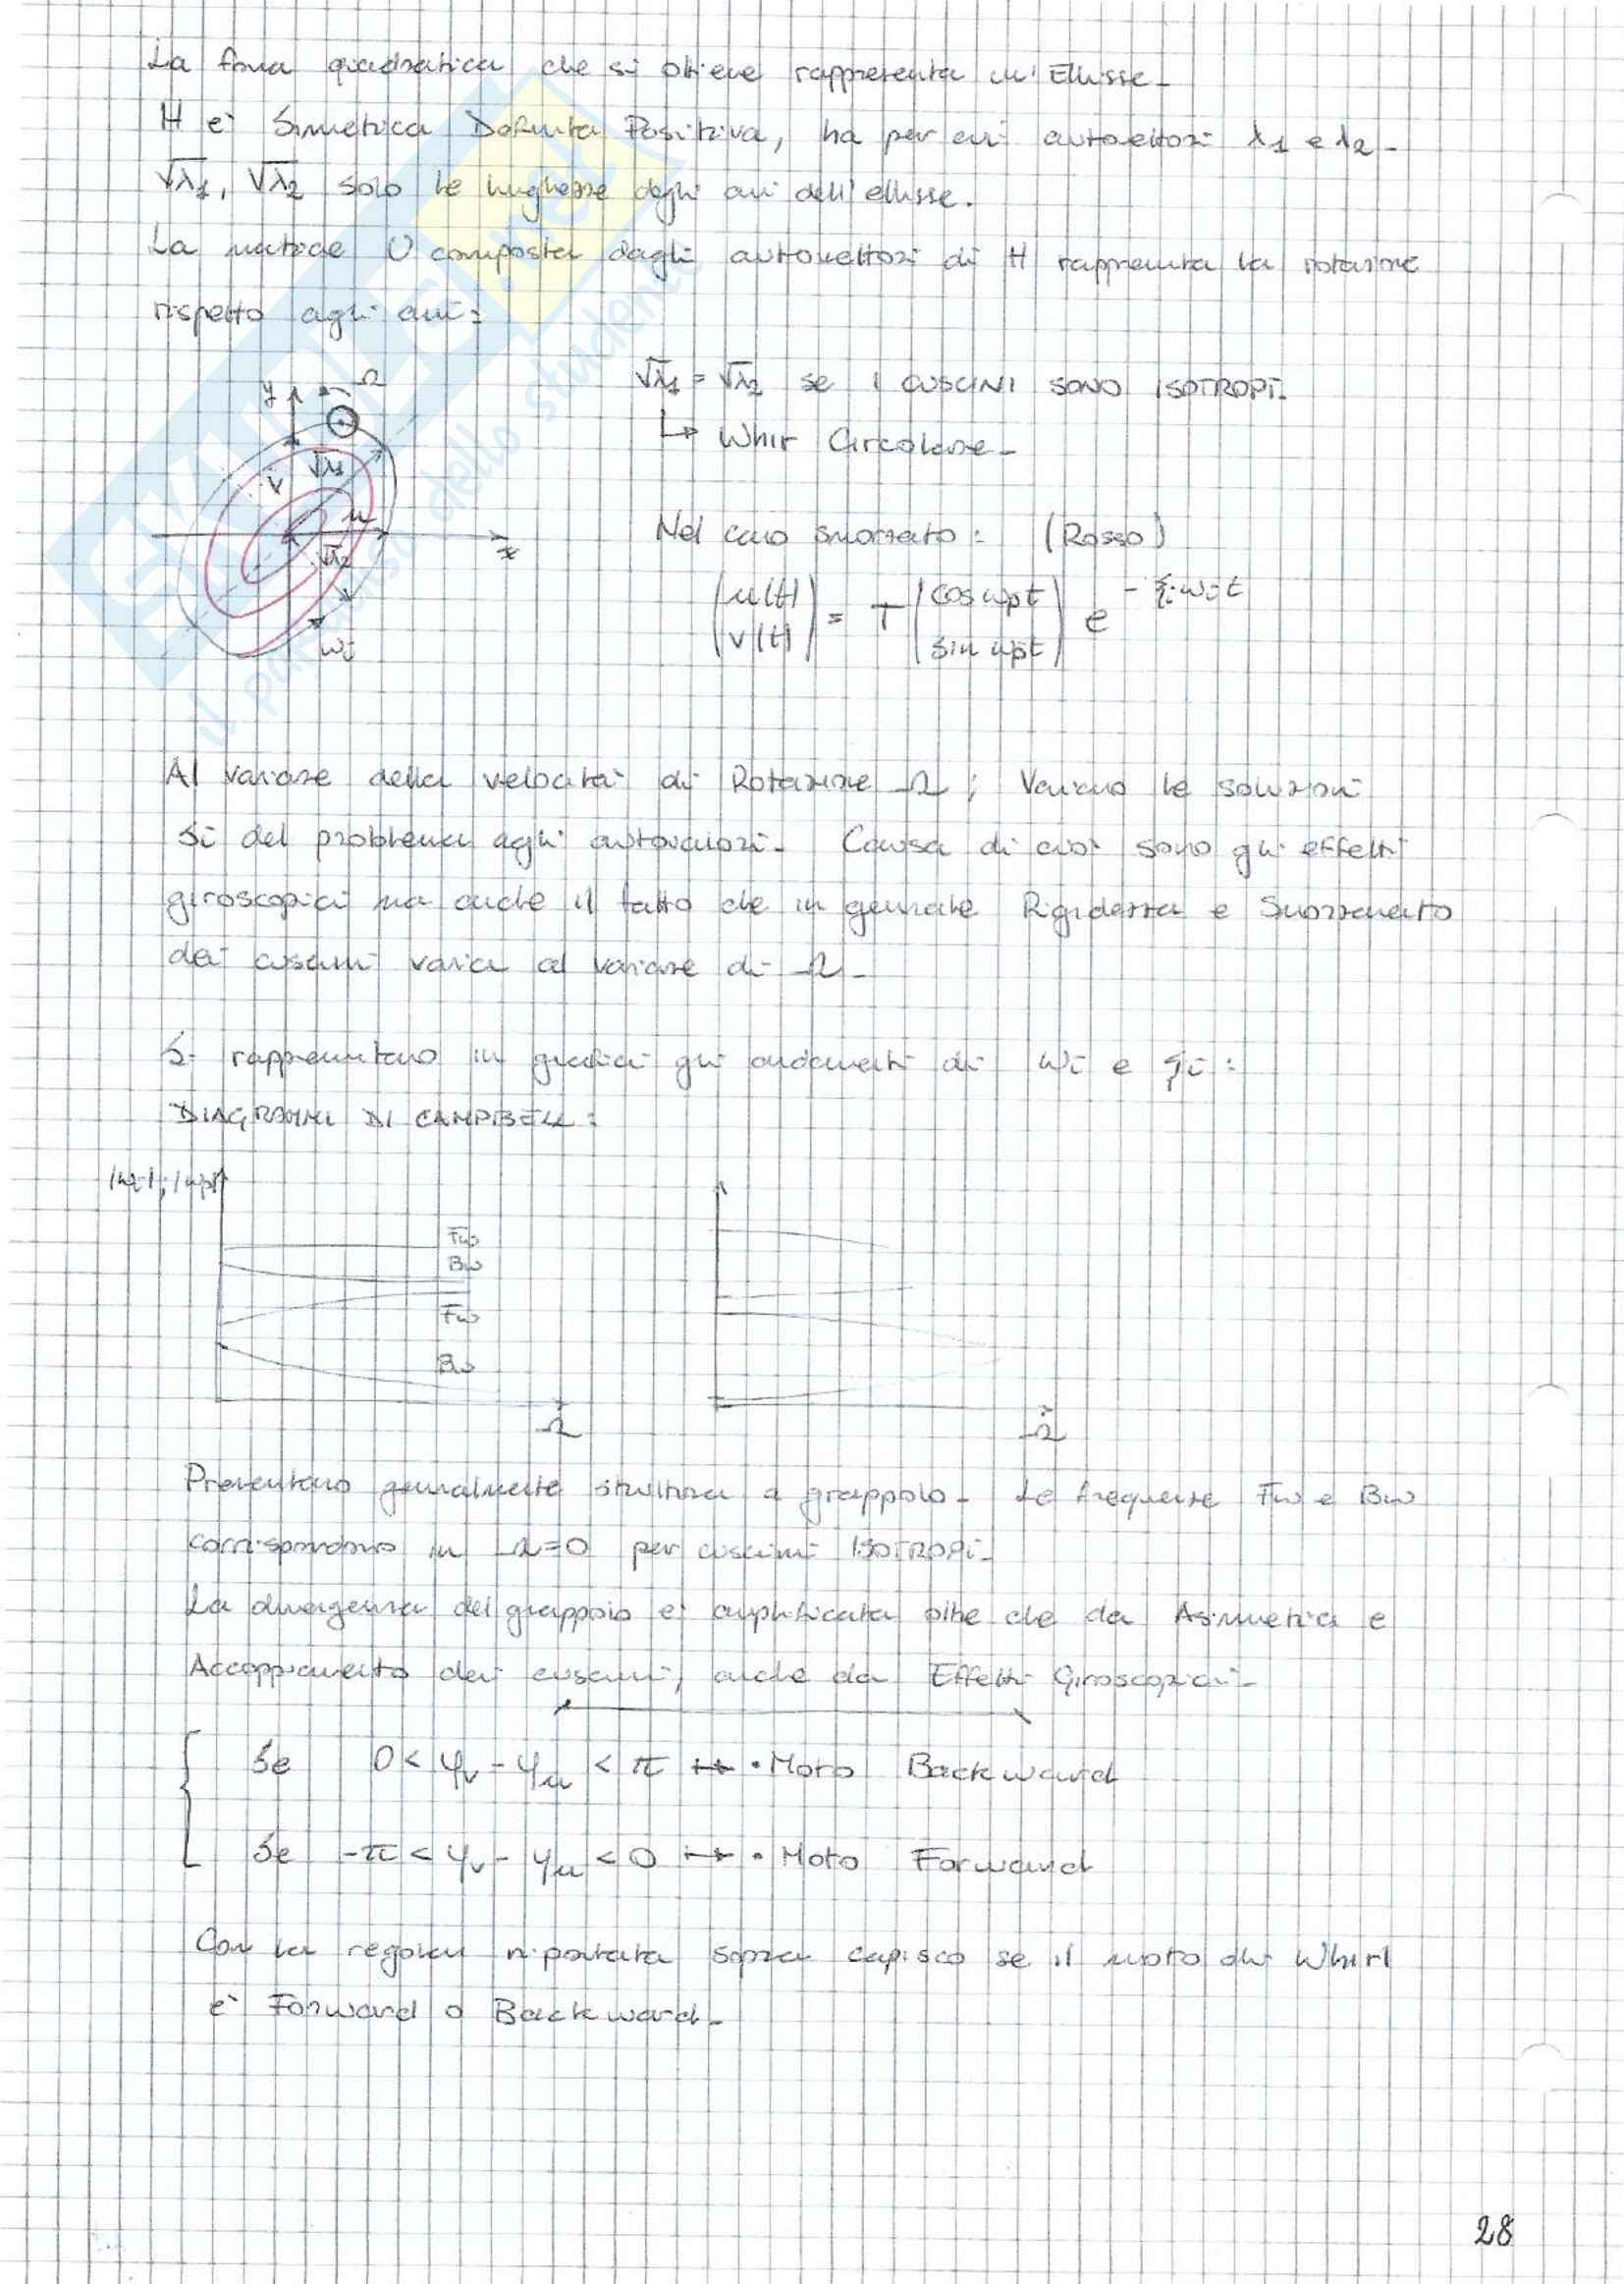 La forma quadratica che si ottiene rappresenta un'Ellisse-
H è Simmetrica Definita Positiva, ha per cui autovettori λ1 e λ2-
√λ1, √λ2 solo le lunghezze degli assi dell'ellisse.
La matrice U composta dagli autovettori di H rappresenta la rotazione
rispetto agli assi:
y Ω
√λ1 = √λ2 se i CUSCINI SONO ISOTROPI-
↳ Whir Circolare-
√λ1
v
u
x
√λ2
ωi
Nel caso smorzato: (Rosso)
(u(t) v(t)) = T (cos ωpt sin ωpt) e^-ξiωit
Al variare della velocità di Rotazione Ω; Variano le soluzioni
Si del problema agli autovalori- Causa di ciò sono gli effetti
giroscopici ma anche il fatto che in generale Rigidezza e Smorzamento
dei cuscini varia al variare di Ω-
Si rappresentano in grafici gli andamenti di ωi e ξi:
DIAGRAMMI DI CAMPBELL:
|ωi|;|ωp|
Fw
Bw
Fw
Bw
Ω
Ω
Presentano generalmente struttura a grappolo- Le frequenze Fw e Bw
corrispondono in Ω=0 per cuscini ISOTROPi-
La divergenza del grappolo è amplificata oltre che da Asimmetria e
Accoppiamento dei cuscini, anche da Effetti Giroscopici-
Se 0 < φv - φu < π ↦ • Moto Backward
Se -π < φv - φu < 0 ↦ • Moto Forward
Con la regola riportata sopra capisco se il moto di Whirl
è Forward o Backward-
28
il paradiso dello studente